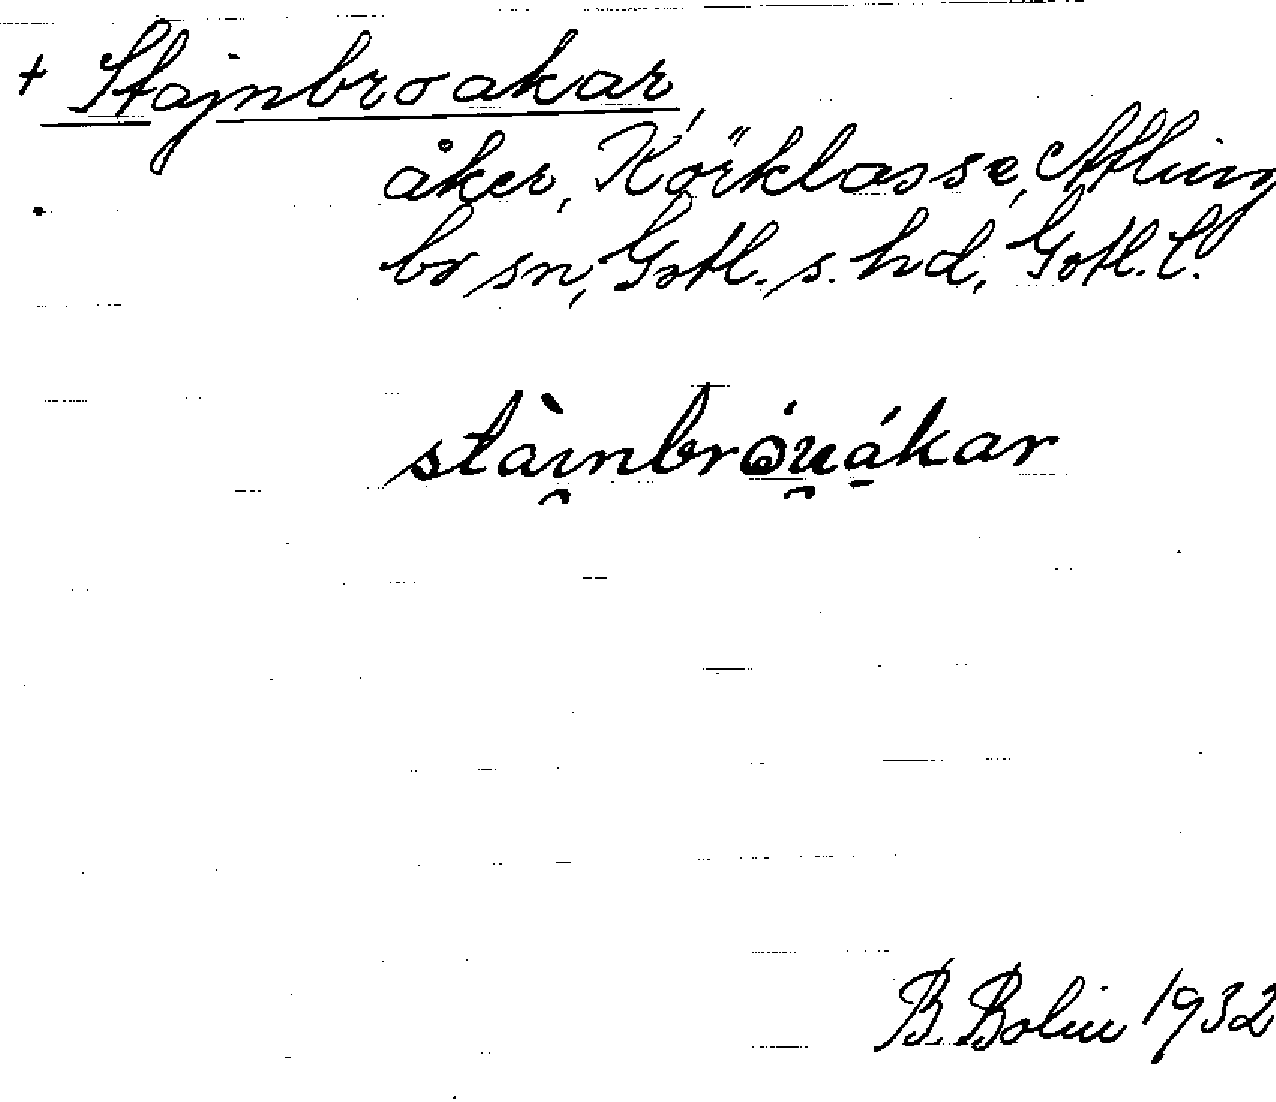 + Stajnbroakar,
åker, Körklasse, Atling
bo sn, Gotl. s. hd, Gotl. l.
stài̯nbróu̯ákar
B. Bolin 1932